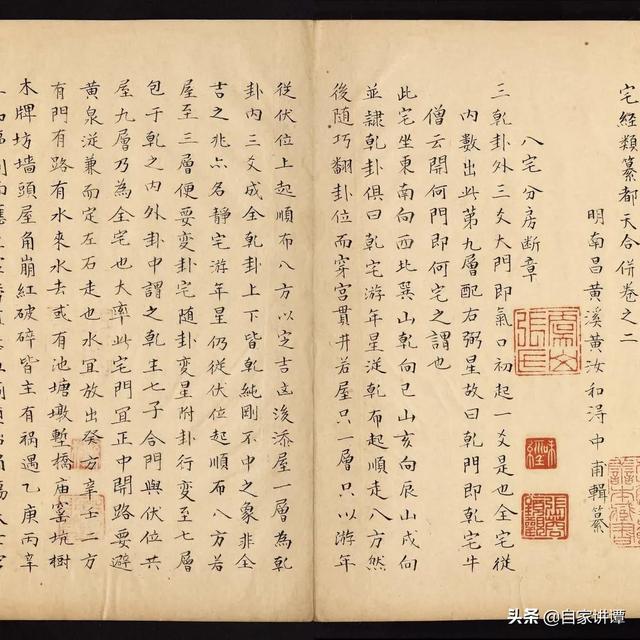 宅經類纂都天合併卷之二
明南昌黃溪黃汝和浔中甫輯纂
八宅分房断章
三乾卦外三爻大門即氣口初起一爻是也全宅從
内數出此第九層配右弼星故曰乾門即乾宅牛
僧云開何門即何宅之謂也
此宅坐東南向西北巽山乾向巳山亥向辰山戌向
並隷乾卦俱曰乾宅游年星從乾布起順走八方然
後随巧翻卦位而穿宮貫井若屋只一層只以游年
從伏位上起順布八方以定吉凶後添屋一層為乾
卦内三爻成全乾卦上下皆乾純剛不中之象非全
吉之兆亦名静宅游年星仍從伏位起順布八方若
屋至三層便要変卦宅随卦变星附卦行变至七層
包于乾之内外卦中謂之乾主七子合門與伏位共
屋九層乃為全宅也大率此宅門宜正中開路要避
黄泉從兼而定左右走也水宜放出癸方辛壬二方
有門有路有水來水去或有池塘墩塹橋庙窑坑樹
木牌坊墙頭屋角崩紅破碎皆主有祸遇乙庚丙辛
味經
头条 @自家讲谭